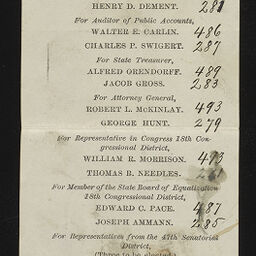 HENRY D. DEMENT. 281
For Auditor of Public Accounts,
WALTER E. CARLIN. 486
CHARLES P. SWIGERT. 287
For State Treasurer,
ALFRED ORENDORFF. 489
JACOB GROSS. 283
For Attorney General,
ROBERT L. McKINLAY. 493
GEORGE HUNT. 279
For Representative in Congress 18th Con-
gressional District,
WILLIAM R. MORRISON. 493
THOMAS B. NEEDLES.
For Member of the State Board of Equalization
18th Congressional District,
EDWARD C. PACE. 487
JOSEPH AMMANN. 285
For Representatives from the 47th Senatorial
District,
(Three to be elected.)